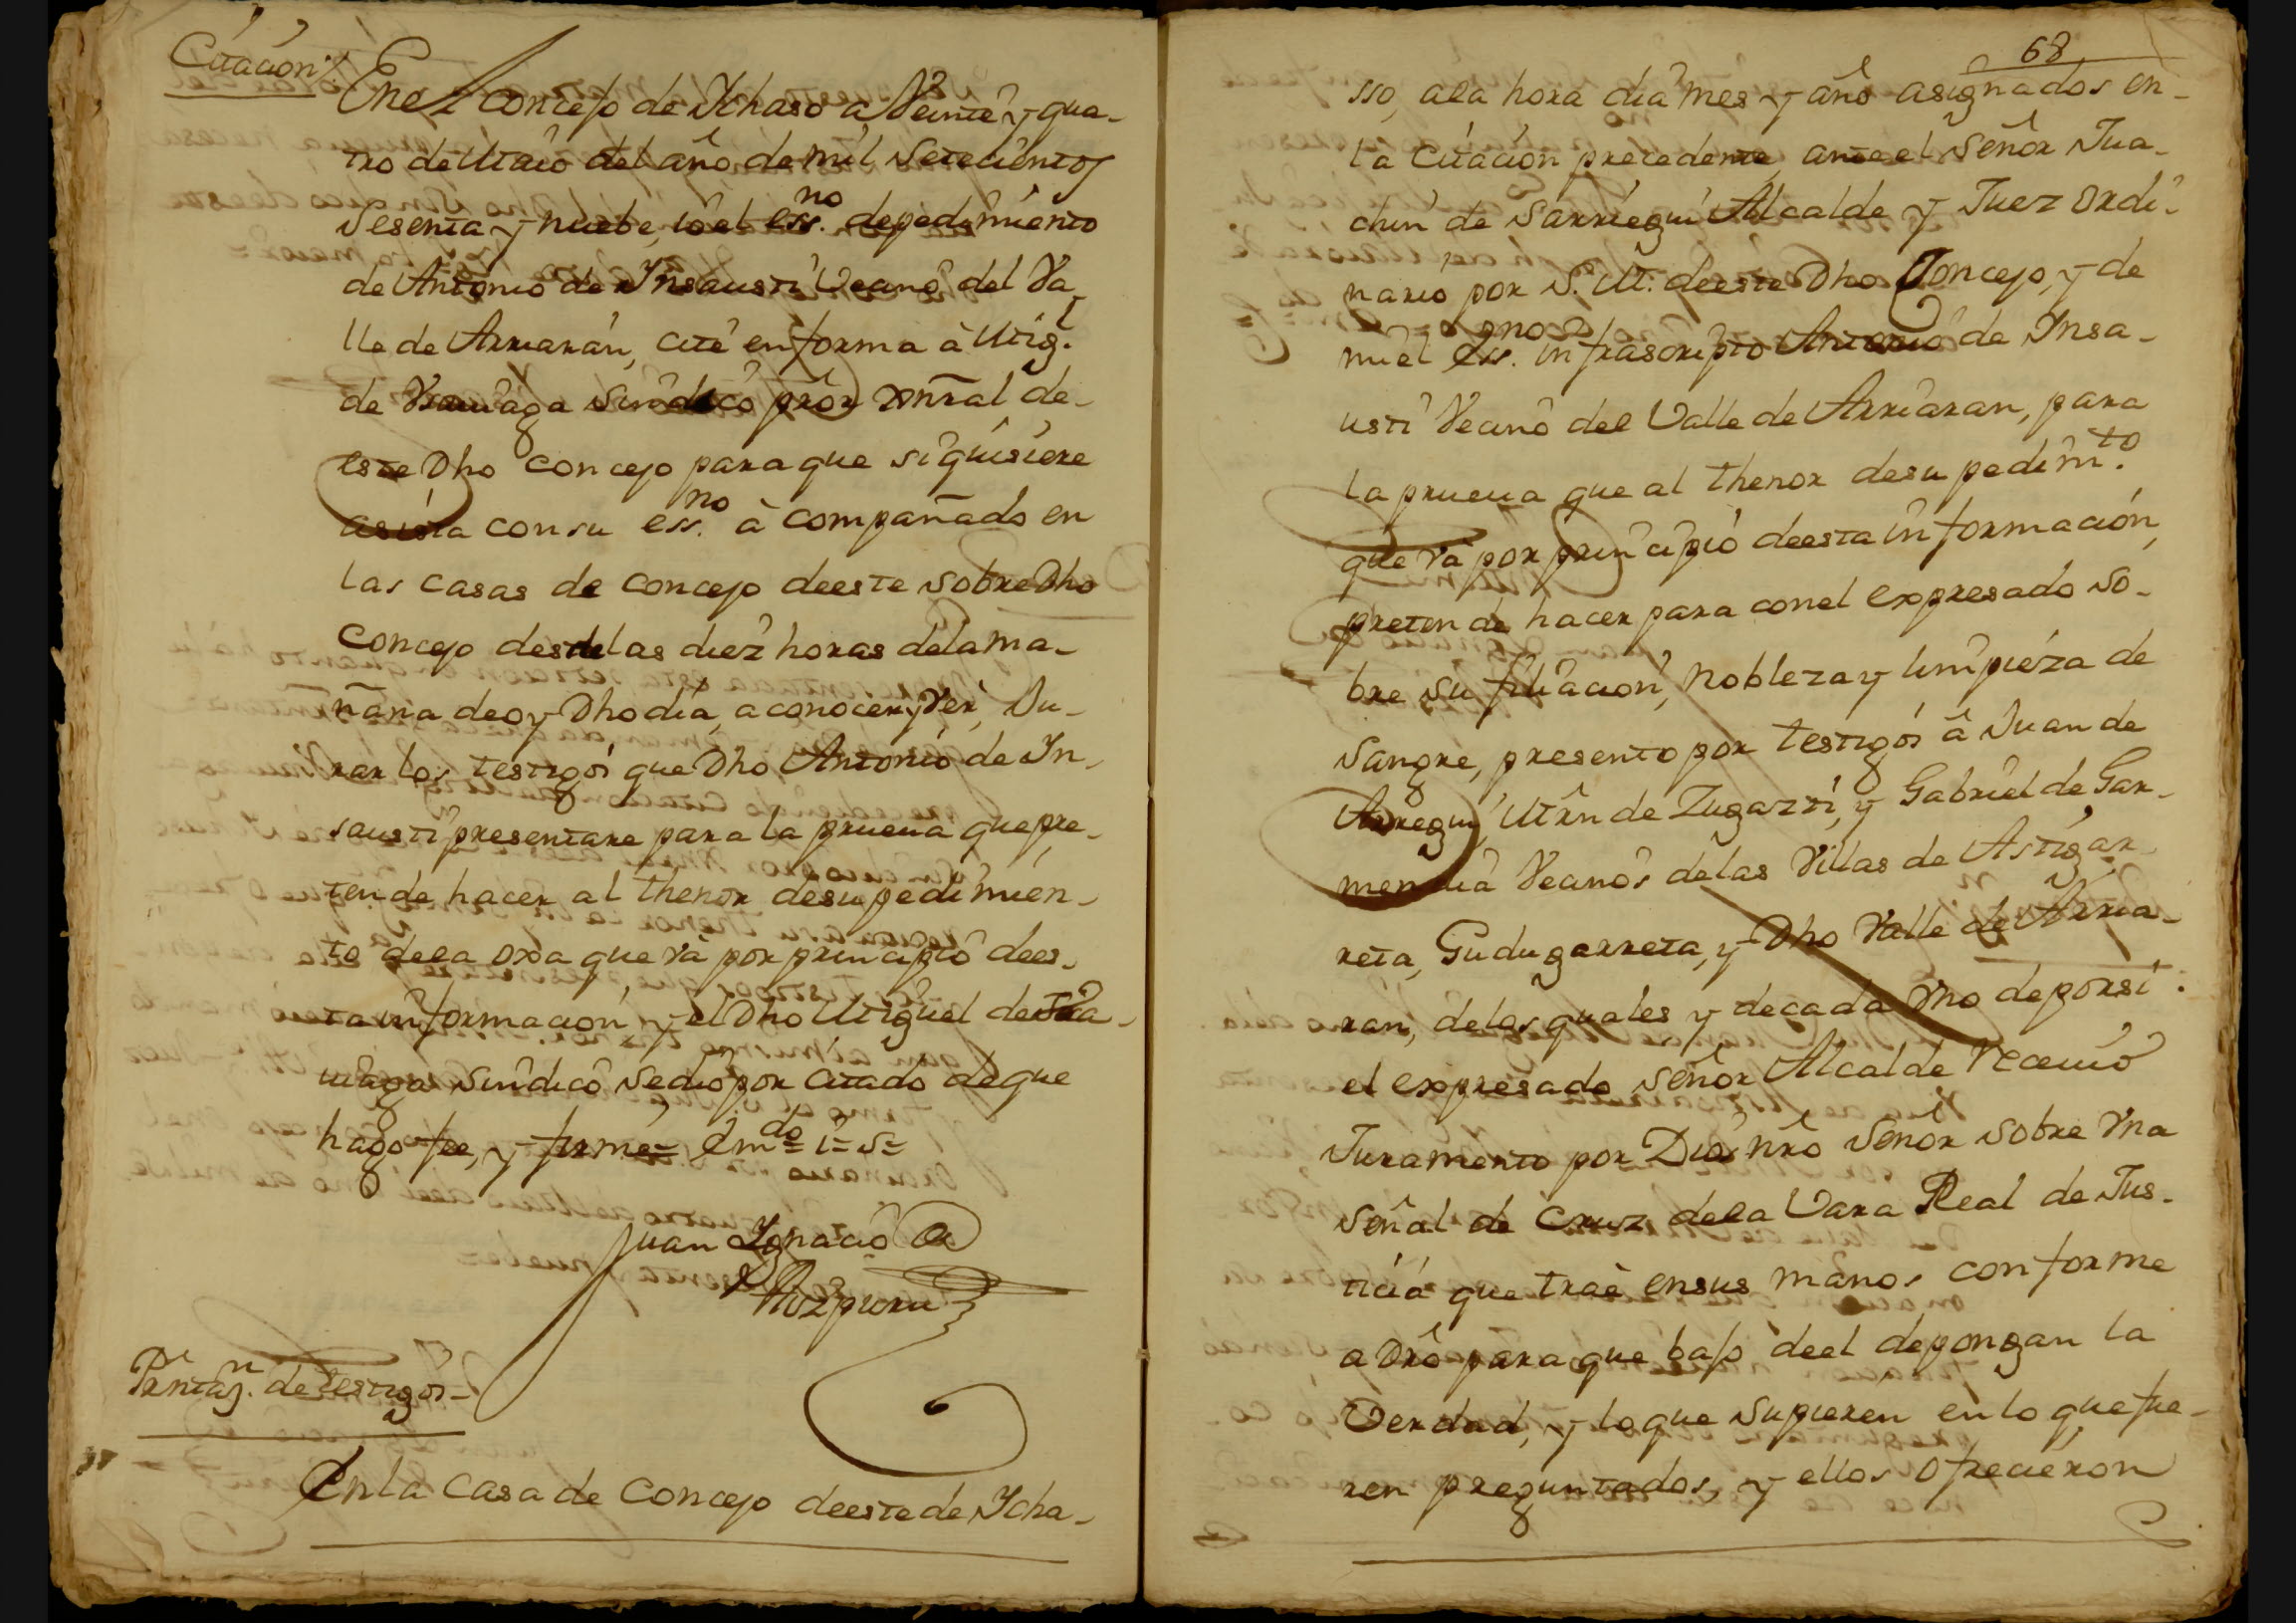 Citacion
En el concejo de Ychaso a Veinte y qua-
tro de Maio del año de mil Setecientos
Sesenta y nuebe, io el ess.no de pedimiento
de Antonio de Ynsausti Vecino del Va-
lle de Arriarán, cité en forma à Mig.l
de Sindico prõr xñral de
este Dho concejo para que si quisiere
asista con su ess.no à compañado en
las casas de concejo de este sobre Dho
Concejo desde las diez horas de la ma-
ñana de oy Dho dia, a conocer y Ver, Ju-
rar los testigos que Dho Antonio de Yn-
sausti presentare para la prueua que pre-
tende hacer al thenor de su pedimien-
to de la oxa que và por principio de es-
ta informacion, y el Dho Miguel de
Sindico se dio por Citado de que
hago fee, y firme= Em.do= i= s=
Juan Ygnacio de
Aozpiroz
Prntaz.n de testigos-
En la Casa de Concejo de este de Ycha-
68
sso, a la hora dia mes y año asignados en-
la Citacion precedente, ante el Señor Jua-
chin de Sarriegui Alcalde y Juez ordi-
nario por S. M. de este Dho Concejo, y de
mi el Ess.no infrascripto Antonio de Ynsa-
usti Vecino del Valle de Arriaran, para
la prueua que al thenor de su pedim.to
que và por principio de esta informacion,
pretende hacer para con el expresado so-
bre su filiacion, nobleza y limpieza de
Sangre, presento por testigos â Juan de
Arregui, Mrñ de Zugazti, y Gabriel de Gar-
mendia Vecinos de las Villas de Astigar-
reta, Gudugarreta, y Dho Valle de Arria-
ran, de los quales y de cada Vno de por si
el expresado Señor Alcalde Receuio
Juramento por Dios nrõ Señor sobre Vna
Señal de Cruz de la Vara Real de Jus-
ticia que trae en sus manos conforme
a Drõ para que bajo de el depongan la
Verdad, y lo que supieren en lo que fue-
ren preguntados, y ellos Ofrecieron